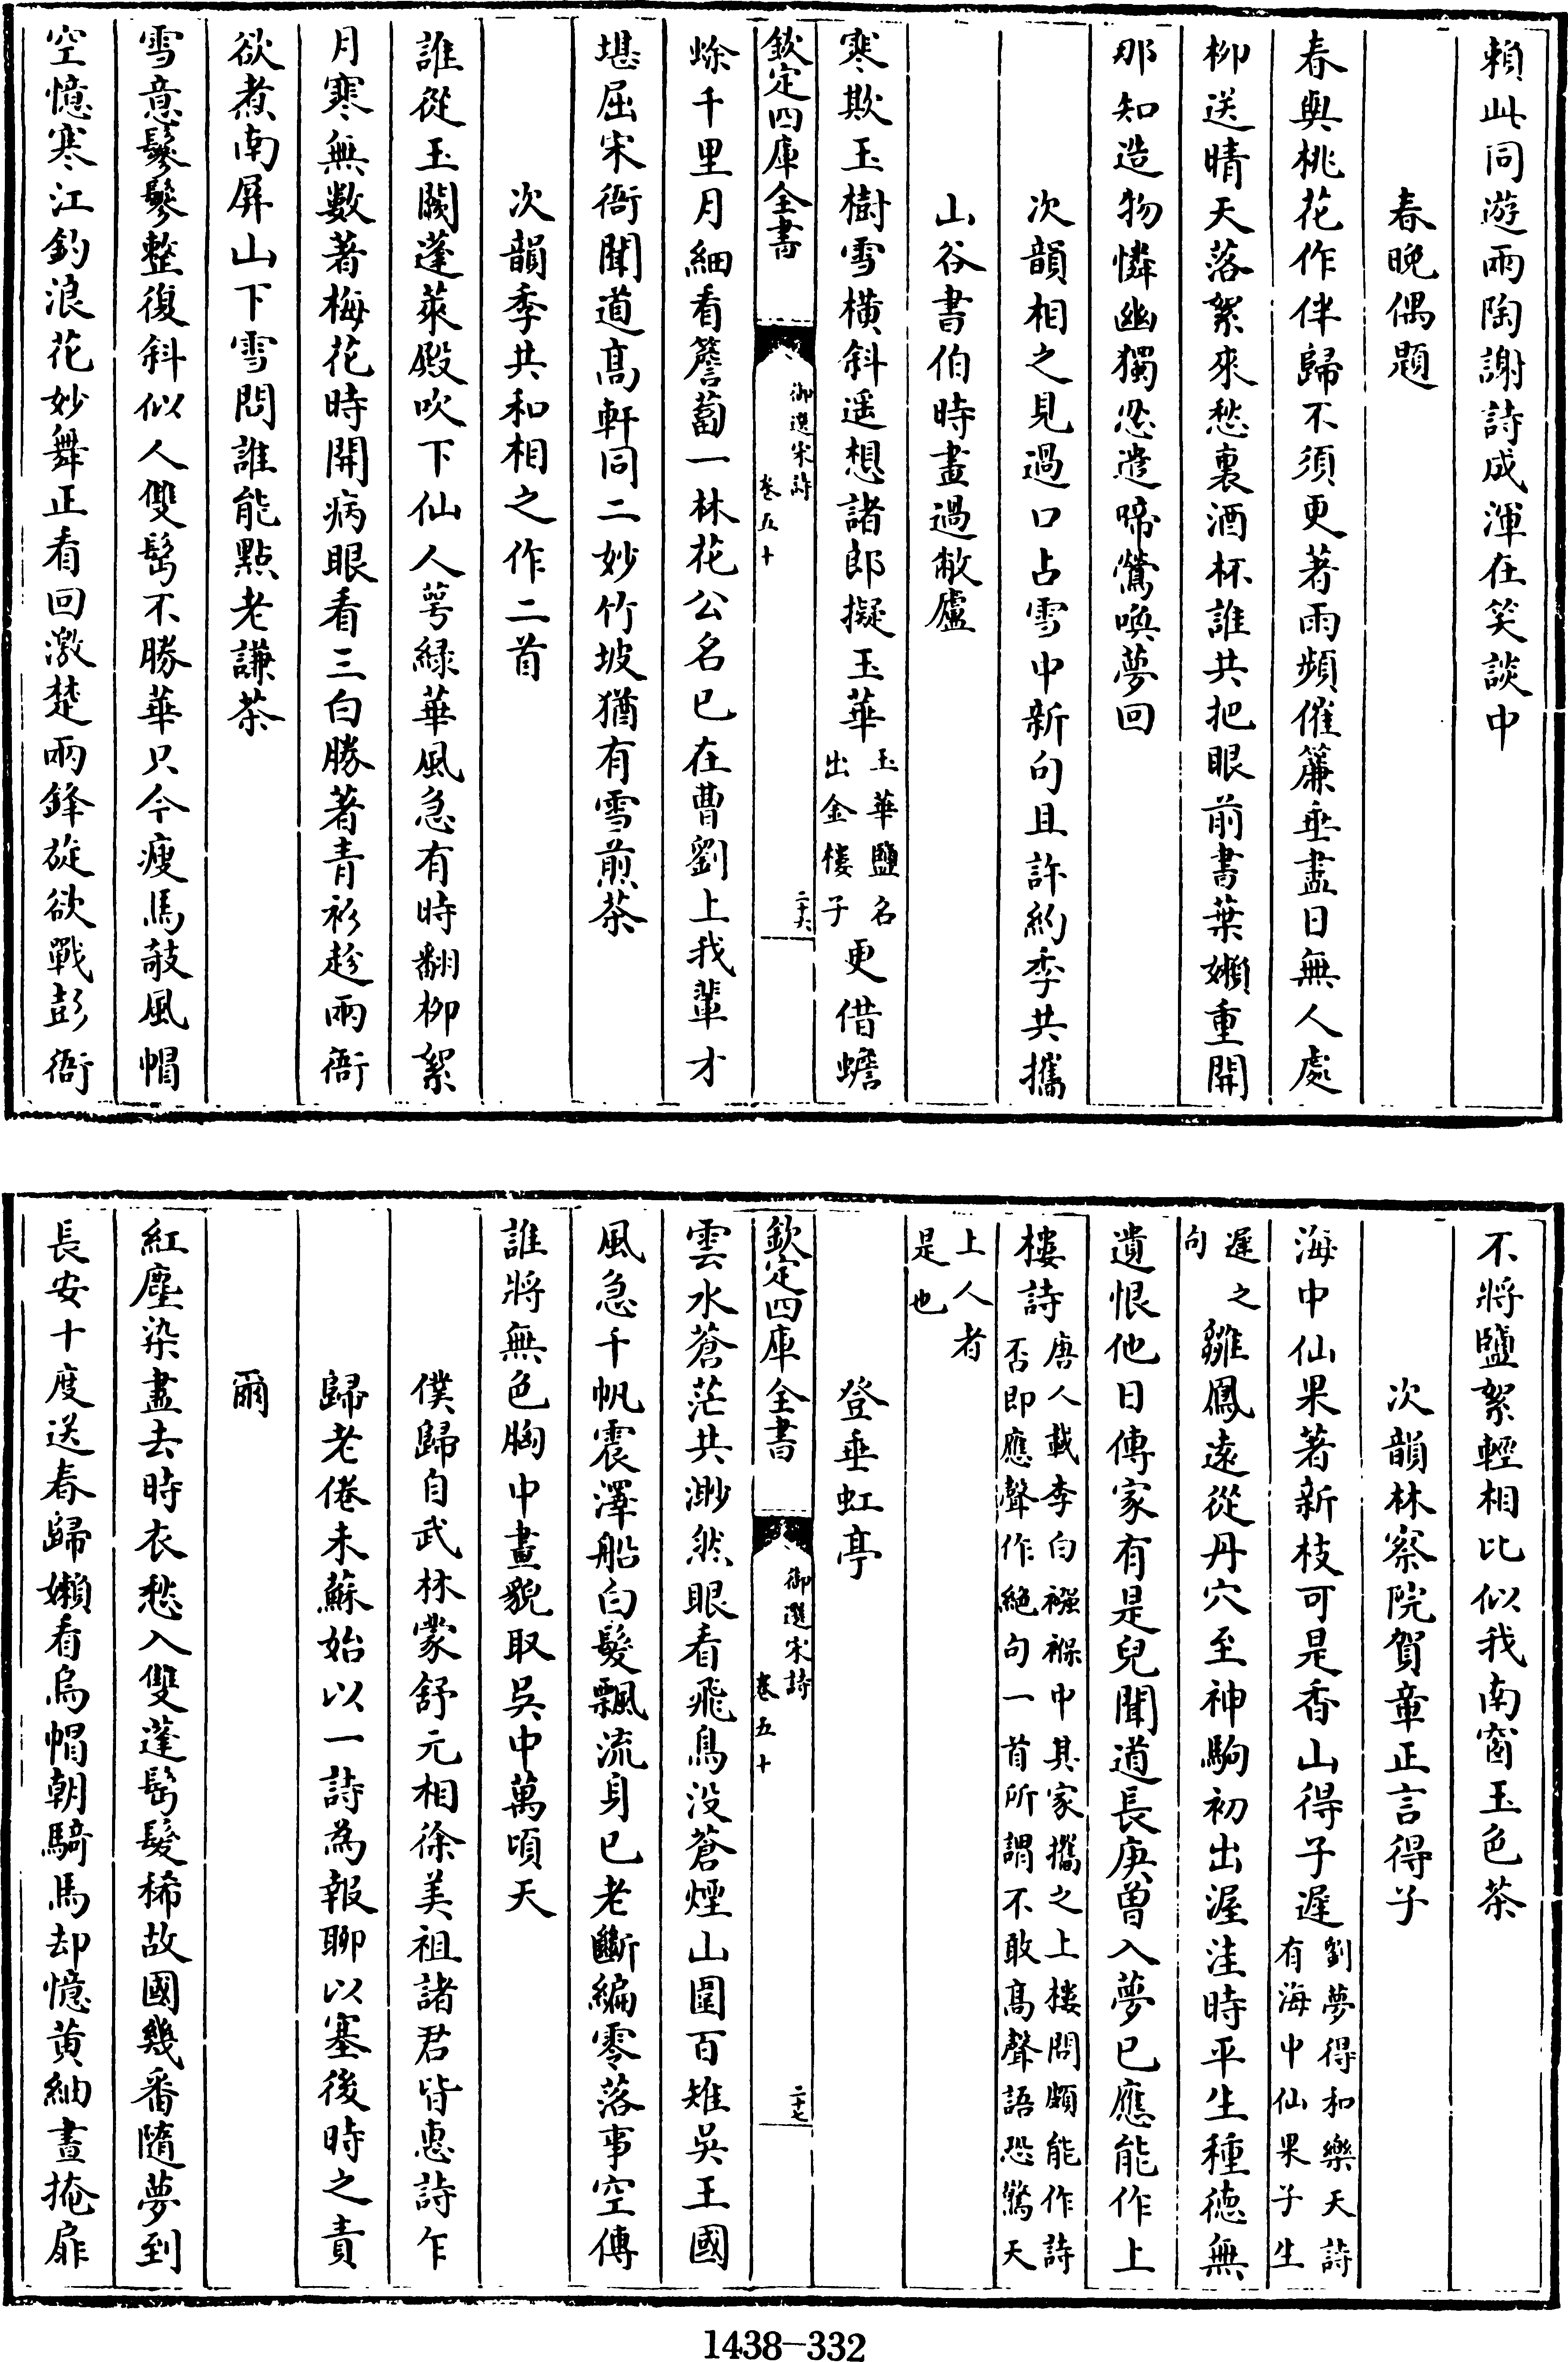 賴此同遊兩陶謝詩成渾在笑談中
春晩偶題
春與桃花作伴歸不須更著雨頻催簾垂盡日無人處
柳送晴天落絮來愁裏酒杯誰共把眼前書葉嬾重開
那知造物憐幽獨忍遣啼鶯喚夢回
次韻相之見過口占雪中新句且許約季共攜
山谷書伯時畫過敝廬
寒欺玉樹雪橫斜遥想諸郎擬玉華
玉華鹽名
出金樓子
更借蟾
欽定四庫全書
御選宋詩
卷五十
二十六
蜍千里月細看簷蔔一林花公名已在曹劉上我輩才
堪屈宋衙聞道髙軒同二妙竹坡猶有雪煎茶
次韻季共和相之作二首
誰從玉闕蓬萊殿吹下仙人萼緑華風急有時翻柳絮
月寒無數著梅花時開病眼看三白勝著青衫趁兩衙
欲煮南屏山下雪問誰能點老謙茶
雪意鬖鬖整復斜似人雙髩不勝華只今瘦馬敲風帽
空憶寒江釣浪花妙舞正看回激楚兩鋒旋欲戰彭衙
不將鹽絮輕相比似我南窗玉色茶
次韻林察院賀章正言得子
海中仙果著新枝可是香山得子遲
劉夢得和樂天詩
有海中仙果子生
遲之
句
雛鳳遠從丹穴至神駒初出渥洼時平生種徳無
遺恨他日傳家有是兒聞道長庚曽入夢已應能作上
樓詩
唐人載李白襁褓中其家攜之上樓問頗能作詩
否即應聲作絶句一首所謂不敢髙聲語恐驚天
上人者
是也
登垂虹亭
欽定四庫全書
御選宋詩
卷五十
二十七
雲水蒼茫共渺然眼看飛鳥没蒼煙山圍百雉吳王國
風急千帆震澤船白髮飄流身已老斷編零落事空傳
誰將無色胸中畫貌取吳中萬頃天
僕歸自武林蒙舒元相徐美祖諸君皆惠詩乍
歸老倦未蘇始以一詩為報聊以塞後時之責
爾
紅塵染盡去時衣愁入雙蓬髩髮稀故國幾番隨夢到
長安十度送春歸嬾看烏帽朝騎馬却憶黄紬晝掩扉
1438-332